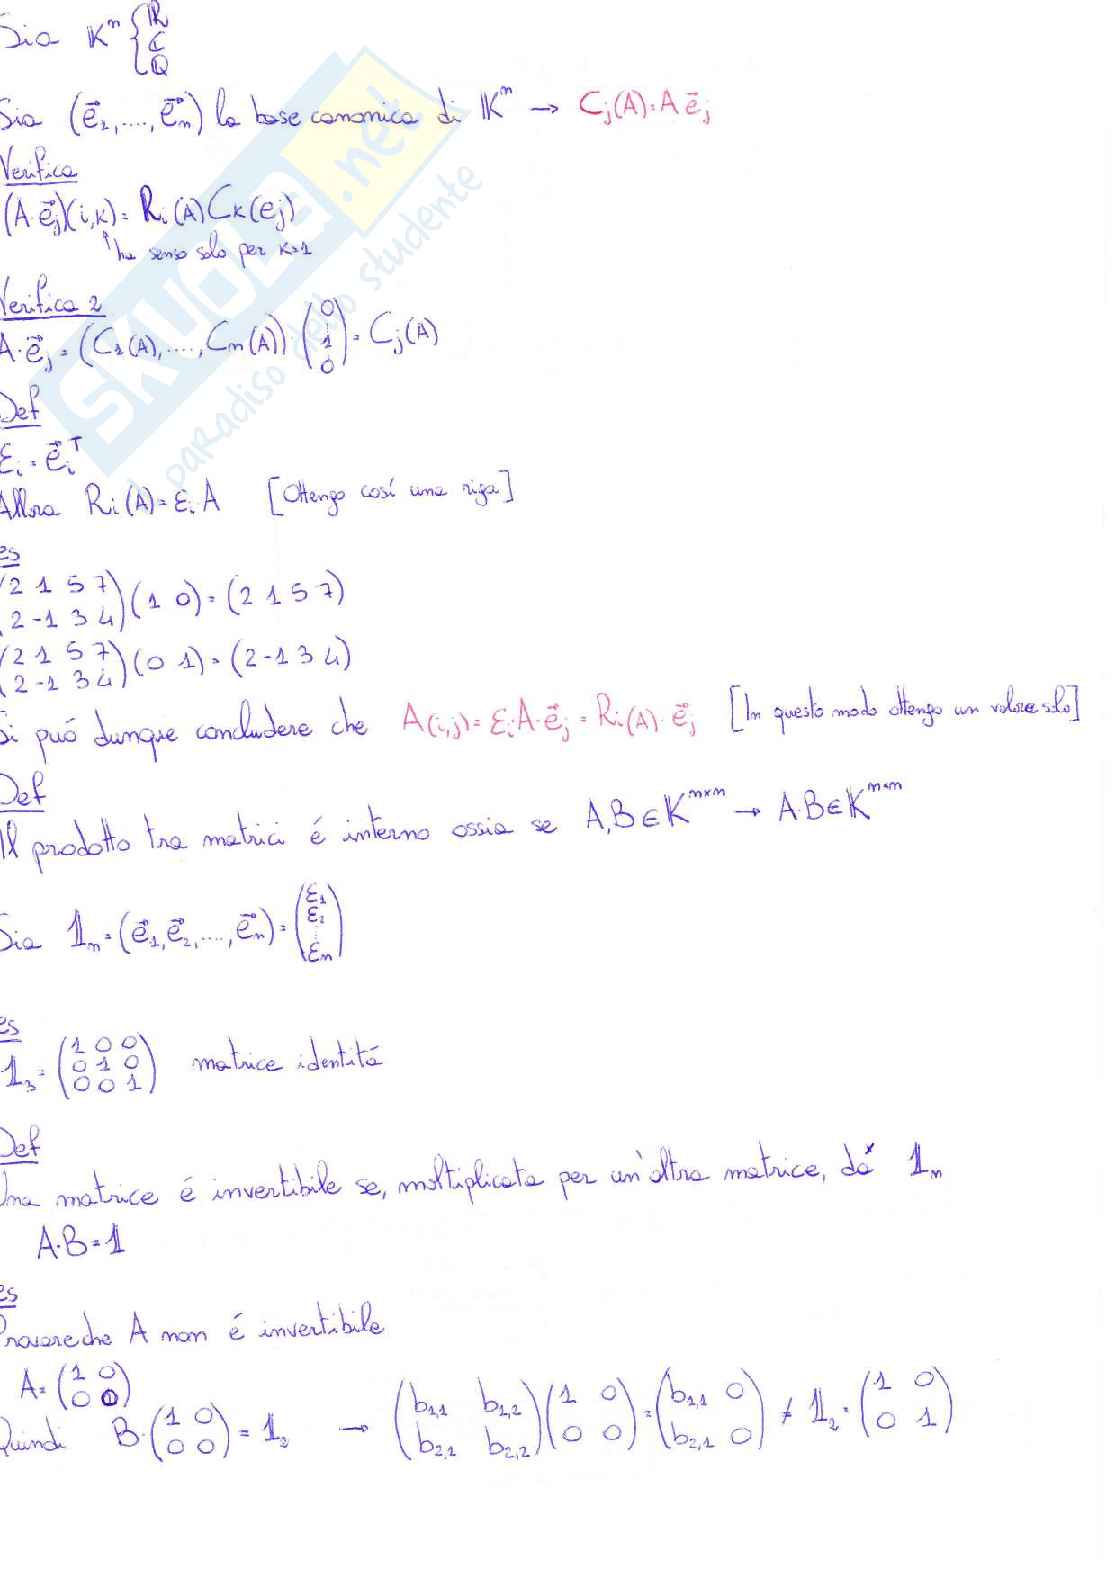 Sia 𝕂ⁿ { ℝ ℂ ℚ
Sia (e⃗₁,....,e⃗ₙ) la base canonica di 𝕂ⁿ → Cⱼ(A)=A e⃗ⱼ
Verifica
(A·e⃗ⱼ)(i,k)= Rᵢ(A)Cₖ(eⱼ)
↑ha senso solo per k=1
Verifica 2
A·e⃗ⱼ=(C₁(A),....,Cₙ(A)) (0 ⋮ 1 0) = Cⱼ(A)
Def
εᵢ = e⃗ᵢᵀ
Allora Rᵢ(A)=εᵢA [Ottengo così una riga]
es
(2 1 5 7
2 -1 3 4)(1 0)=(2 1 5 7)
(2 1 5 7
2 -1 3 4)(0 1)=(2 -1 3 4)
Si può dunque concludere che A(i,j)=εᵢA·e⃗ⱼ=Rᵢ(A)·e⃗ⱼ [In questo modo ottengo un valore solo]
Def
Il prodotto tra matrici é interno ossia se A,B∈𝕂ⁿˣⁿ → A·B∈𝕂ⁿˣⁿ
Sia 𝟙ₙ=(e⃗₁,e⃗₂,....,e⃗ₙ)=(ε₁ ε₂ ⋮ εₙ)
es
𝟙₃=(1 0 0
0 1 0
0 0 1) matrice identitá
Def
Una matrice é invertibile se, moltiplicata per un'altra matrice, dá 𝟙ₙ
A·B=𝟙
es
Provare che A non é invertibile
A=(1 0
0 0)
Quindi B·(1 0
0 0)=𝟙₂ → (b₁,₁ b₁,₂
b₂,₁ b₂,₂)(1 0
0 0)=(b₁,₁ 0
b₂,₁ 0) ≠ 𝟙₂=(1 0
0 1)
SKUOLA.net
il paradiso dello studente